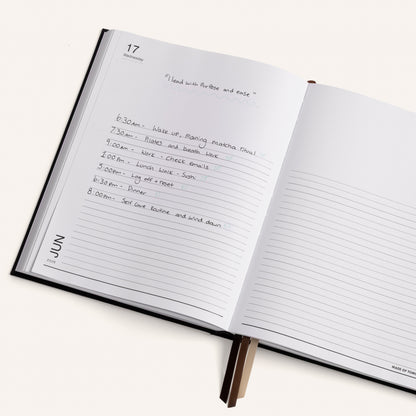 17
Wednesday
"I lead with Purpose and ease"
6:30am - Wake up, Morning Matcha ritual
7:30am - Pilates and breath work
9:00am - Work - Check emails
1:00pm - Lunch
5:00pm - Log off + reset
6:30pm - Dinner
8:00pm - Self love routine and wind down
JUN
MADE OF THIN